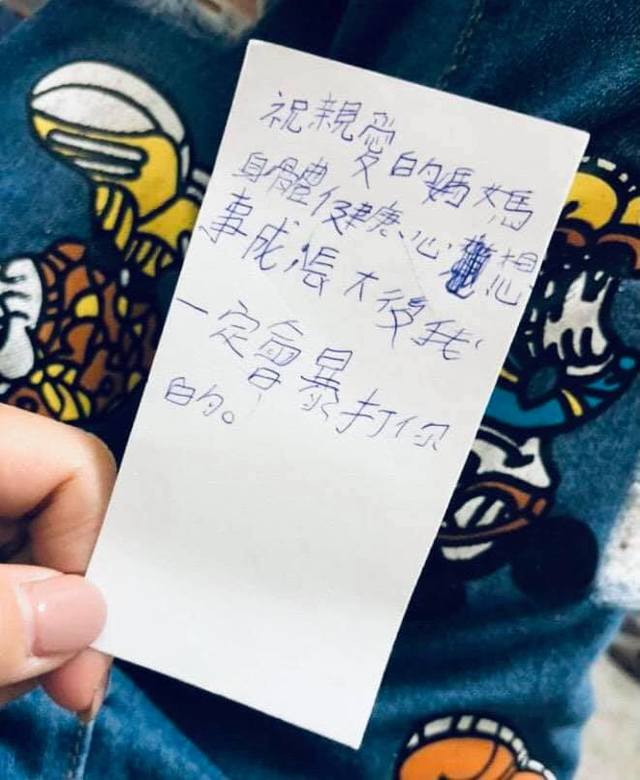 祝親愛的媽媽
身體健康、心想
事成,張大後我
一定會暴打你
的。